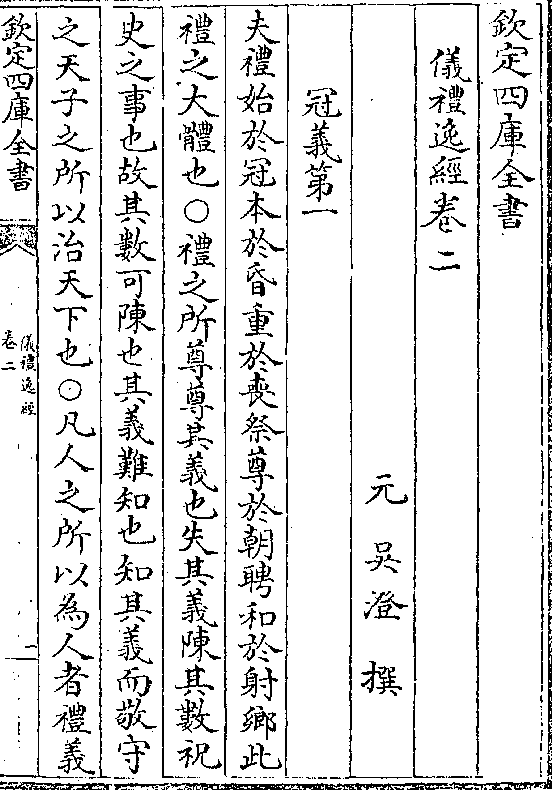 欽定四庫全書
儀禮逸經卷二
元 吳澄 撰
冠義第一
夫禮始於冠本於昏重於喪祭尊於朝聘和於射鄉此
禮之大體也○禮之所尊尊其義也失其義陳其數祝
史之事也故其數可陳也其義難知也知其義而敬守
之天子之所以治天下也○凡人之所以為人者禮義
欽定四庫全書
儀禮逸經
卷二
一